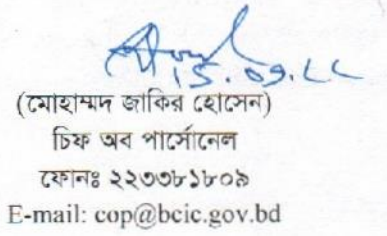 ১৫.০৯.২২
(মোহাম্মদ জাকির হোসেন)
চিফ অব পার্সোনেল
ফোনঃ ২২৩৩৮১৮০৯
E-mail: cop@bcic.gov.bd